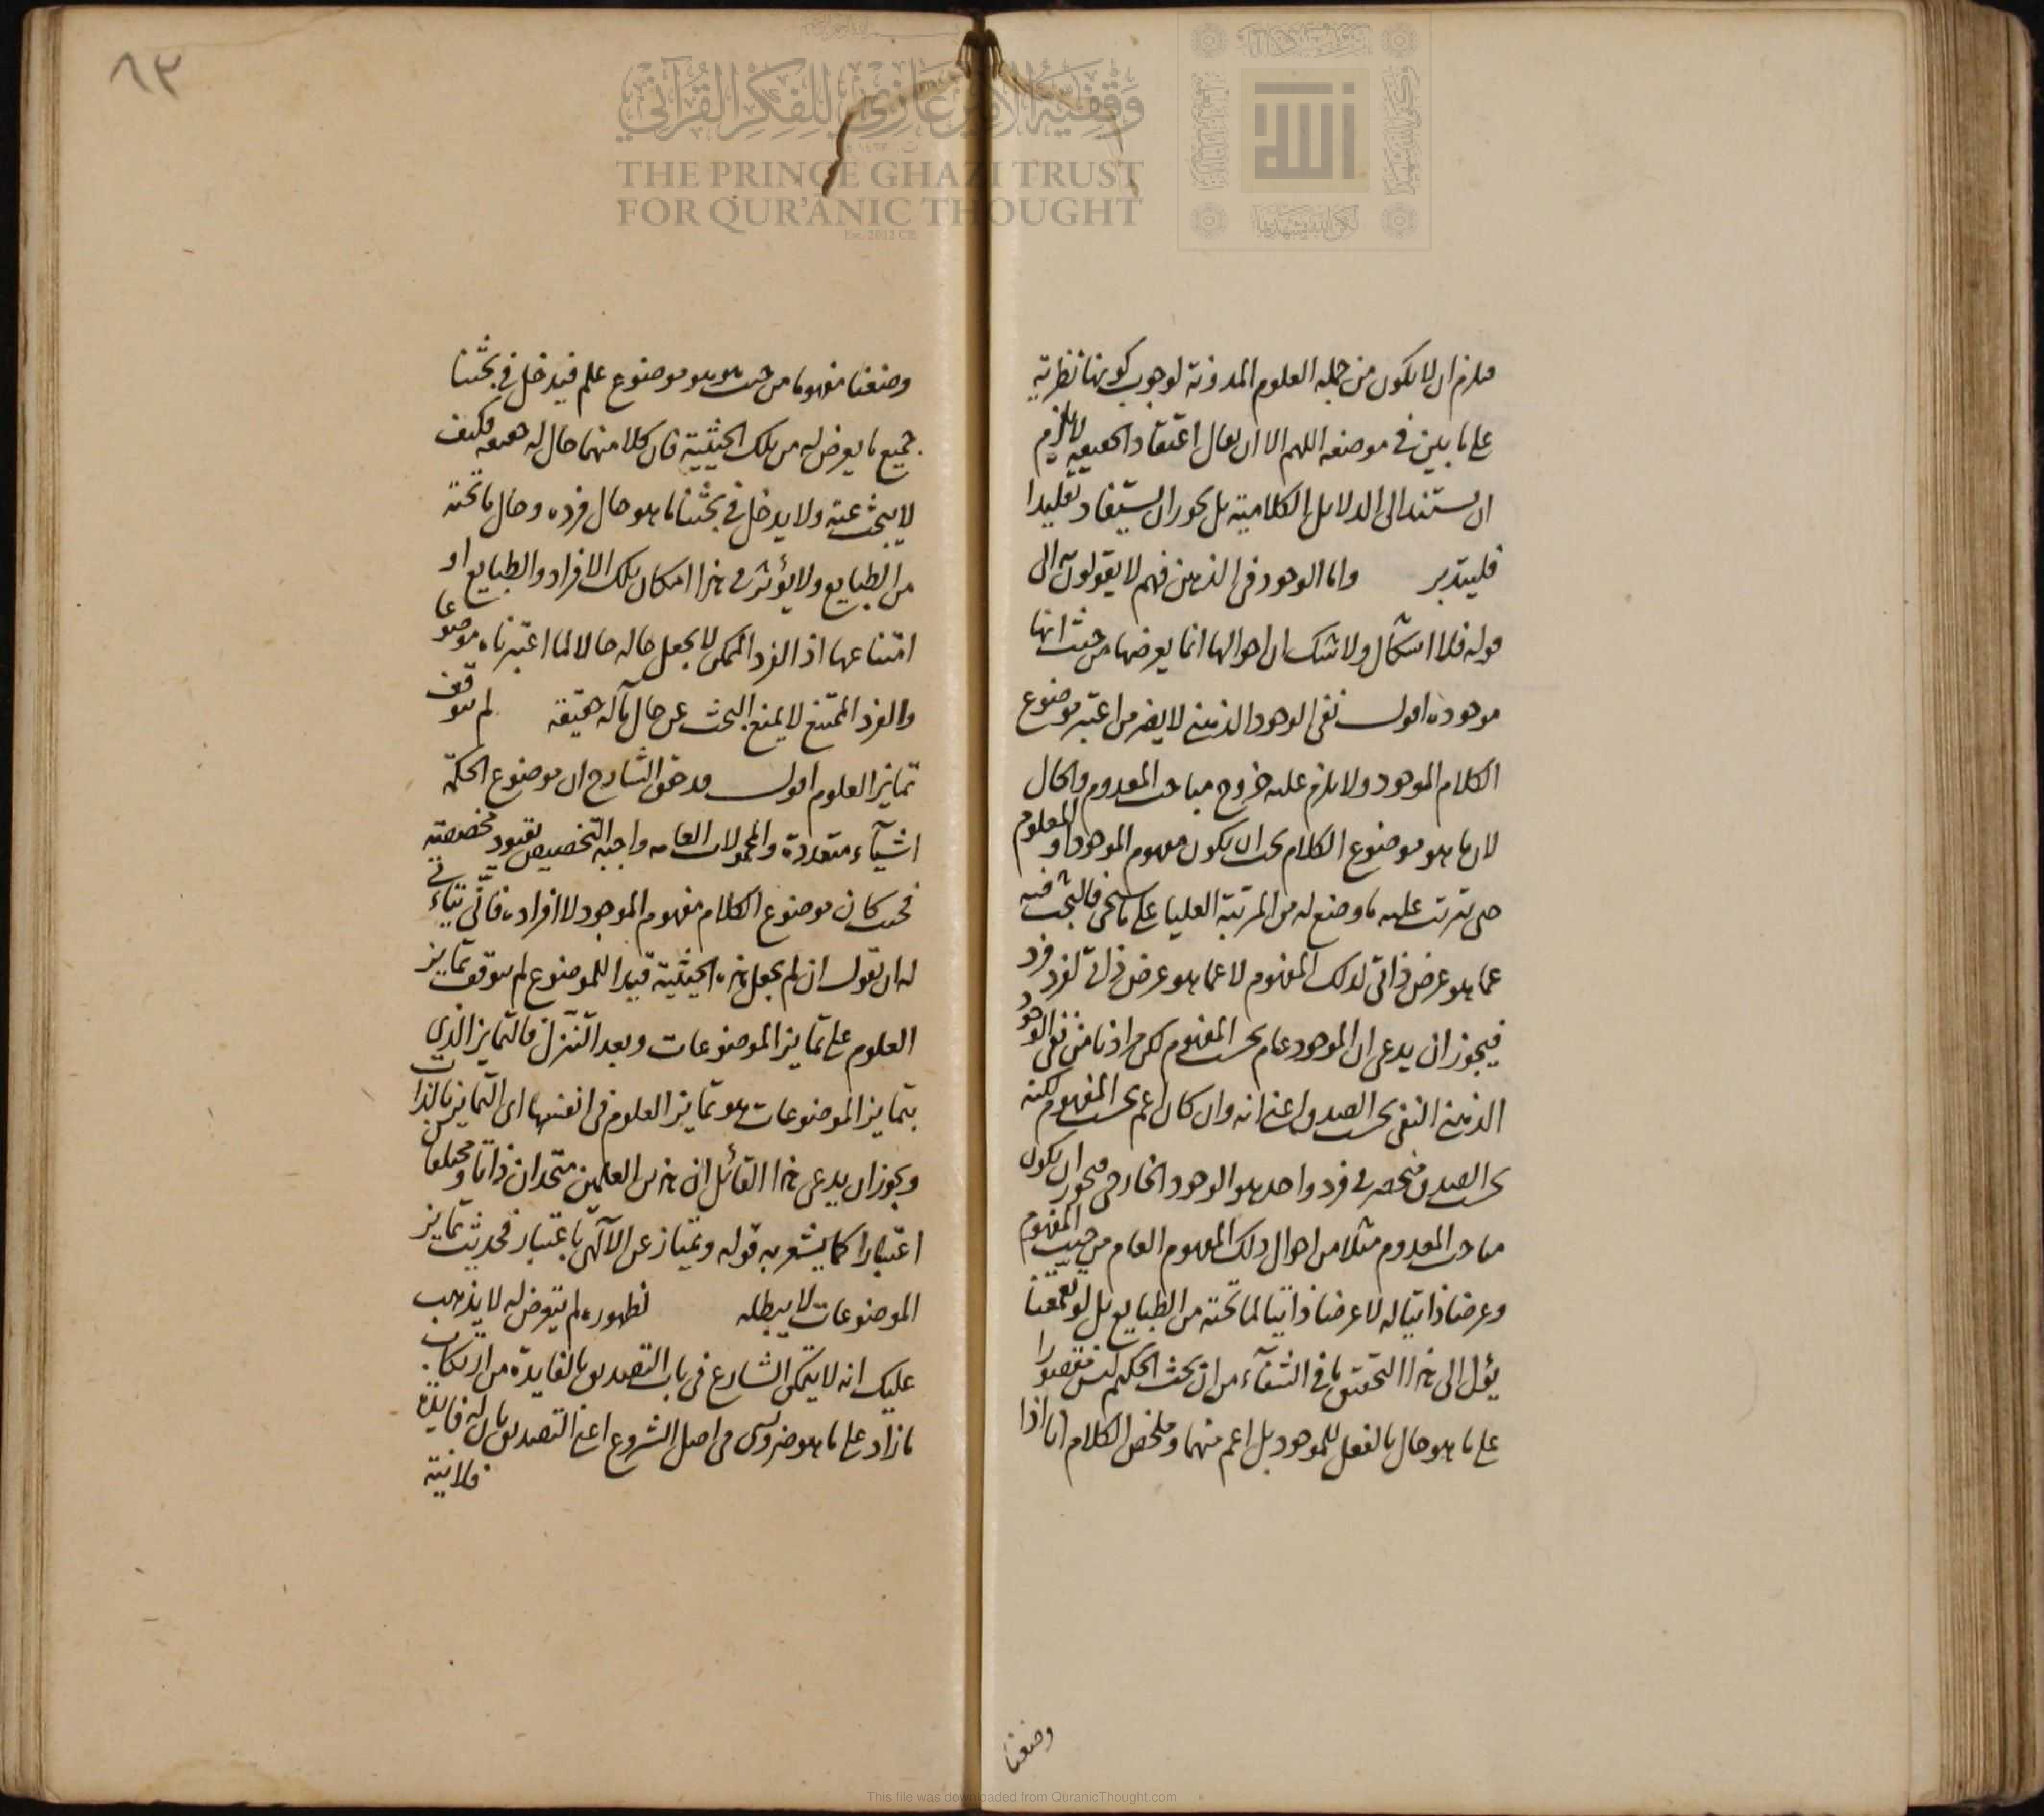 فيلزم ان لا يكون من جملة العلوم المدونة لوجوب كونها نظرية
على ما بين في موضعه اللهم الا ان يقال اعتقاد الحقيقة لا يلزم
ان يستند الى الدلايل الكلامية بل يجوز ان يستفاد تقليدا
فليتدبر واما الوجود في الذهن فهم لا يقولون الى
قوله فلا اشكال ولا شك ان احوالها انما يعرضها من حيث انها
موجودة اقول نفى الوجود الذهني لا يضر من اعتبر موضوع
الكلام الموجود ولا يلزم عليه خروج مباحث المعدوم والحال
لان ما هو موضوع الكلام يجب ان يكون مفهوم الموجود او المعلوم
حتى يترتب عليه ما وضع له من المرتبة العليا على ما سنحقق فالبحث فيه
عما هو عرض ذاتي لذلك المفهوم لا عما هو عرض ذاتي لفرد فرد
فيجوز ان يدعى ان الموجود عام بحسب المفهوم لكن مرادنا من نفى الوجود
الذهني النفى بحسب الصدق اعنى انه وان كان اعم بحسب المفهوم لكنه
بحسب الصدق منحصر في فرد واحد هو الوجود الخارجى فيجوز ان يكون
مباحث المعدوم مثلا من احوال ذلك المفهوم العام من حيث المفهوم
وعرضا ذاتيا له لا عرضا ذاتيا لما تحته من الطبايع بل لو تعمقنا
يؤل الى هذا التحقيق ما في الشفآء من ان بحث الحكيم ليس مقصورا
على ما هو حال بالفعل للموجود بل اعم منهما وملخص الكلام انا اذا
وضعنا
٨٣
وضعنا مفهوما من حيث هو هو موضوع علم فيدخل في بحثنا
جميع ما يعرض له من تلك الحيثية فان كلا منهما حال له حقيقة فكيف
لا يبحث عنه ولا يدخل في بحثنا ما هو حال فرده وحال ما تحته
من الطبايع ولا يؤثر في هذا امكان تلك الافراد والطبايع او
امتناعها اذ الفرد الممكن لا يجعل حاله حالا لما اعتبرناه موضوعا
والفرد الممتنع لا يمنع البحث عن حال ما له حقيقة لم يتوقف
تمايز العلوم اقول قد حقق الشارح ان موضوع الحكمة
اشيآء متعددة والمحمولات العامه واجبة التخصيص بقيود مخصصة
فحيث كان موضوع الكلام مفهوم الموجود لا افراده فانى يتأتى
له ان تقول ان لم يجعل هذه الحيثية قيدا للموضوع لم يتوقف تمايز
العلوم على تمايز الموضوعات وبعد التنزل فالتمايز الذى
بتمايز الموضوعات هو تمايز العلوم في انفسها اى التمايز بالذات
ويجوز ان يدعى هذا القائل ان هذين العلمين متحدان ذاتا ومختلفان
اعتبارا كما يشعر به قوله ويمتاز عن الآلهى باعتبار فحديث تمايز
الموضوعات لا يبطله لظهوره لم يتعرض له لا يذهب
عليك انه لا يتمكن الشارع في باب التصديق بالفايدة من ارتكاب
ما زاد على ما هو ضرورى في اصل الشروع اعنى التصديق بان له فايدة
فلا نية
THE PRINCE GHAZI TRUST
FOR QUR'ANIC THOUGHT
Est. 2012 CE
وقفية الأمير غازي للفكر القرآني
الله
This file was downloaded from QuranicThought.com